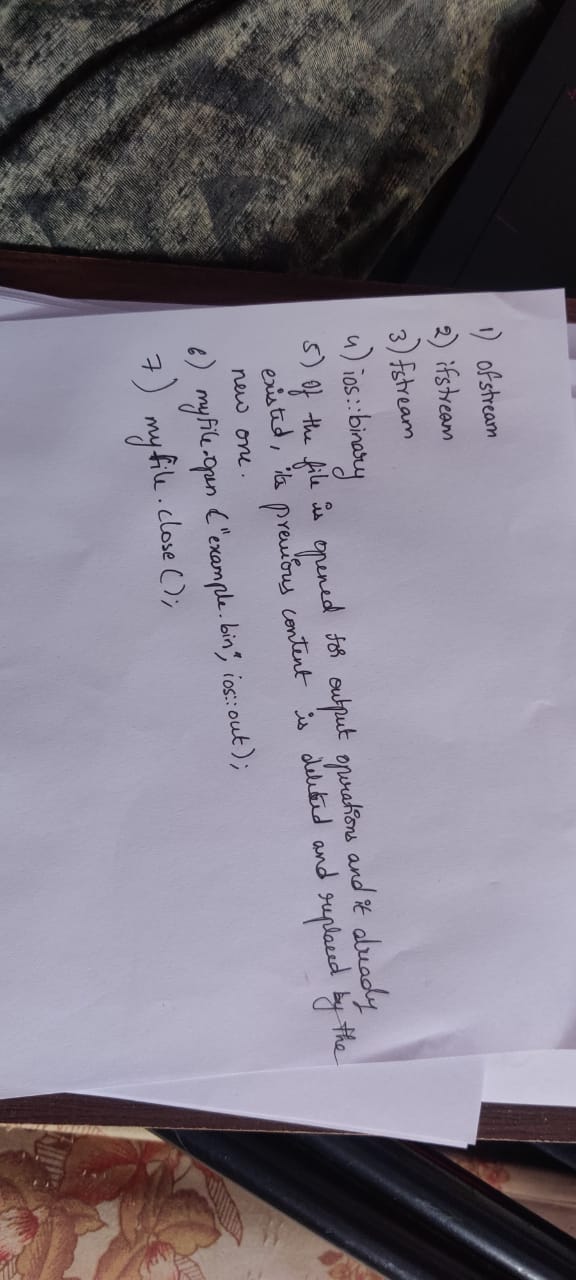 1) ofstream
2) ifstream
3) fstream
4) ios::binary
5) If the file is opened for output operations and it already
existed, its previous content is deleted and replaced by the
new one.
6) myfile.open ("example.bin", ios::out);
7) myfile.close();